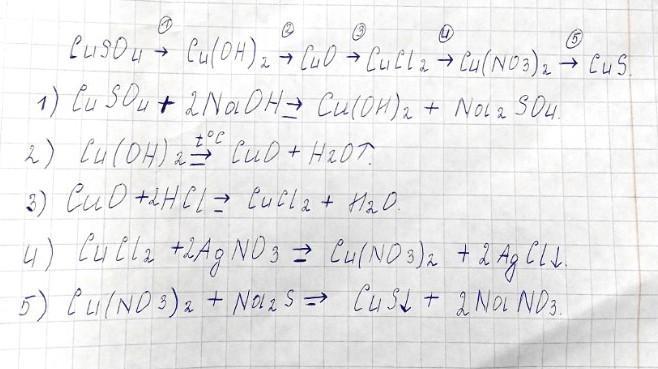 ① ② ③ ④ ⑤
CuSO4 → Cu(OH)2 → CuO → CuCl2 → Cu(NO3)2 → CuS.
1) CuSO4 + 2NaOH → Cu(OH)2 + Na2SO4.
2) Cu(OH)2 t°C→ CuO + H2O↑.
3) CuO + 2HCl → CuCl2 + H2O.
4) CuCl2 + 2AgNO3 → Cu(NO3)2 + 2AgCl↓.
5) Cu(NO3)2 + Na2S → CuS↓ + 2NaNO3.